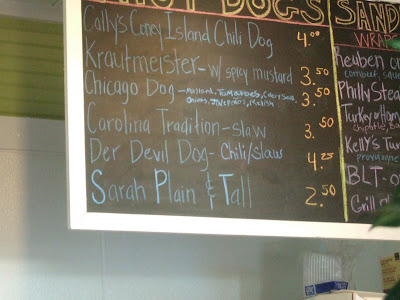 HOT DOGS
Cally's Coney Island Chili Dog 4.00
Krautmeister - w/ spicy mustard 3.50
Chicago Dog - Mustard, Tomatoes, Celery Salt, 3.50
Onions, Jalepenos, Relish
Carolina Tradition - slaw 3.50
Der Devil Dog - Chili/Slaw 4.25
Sarah Plain & Tall 2.50
SAND
WRAPS
Reuben on
Philly Stea
Turkey or Ham
chipotle, Ba
Kelly's Tur
provolone
BLT - o
Grill